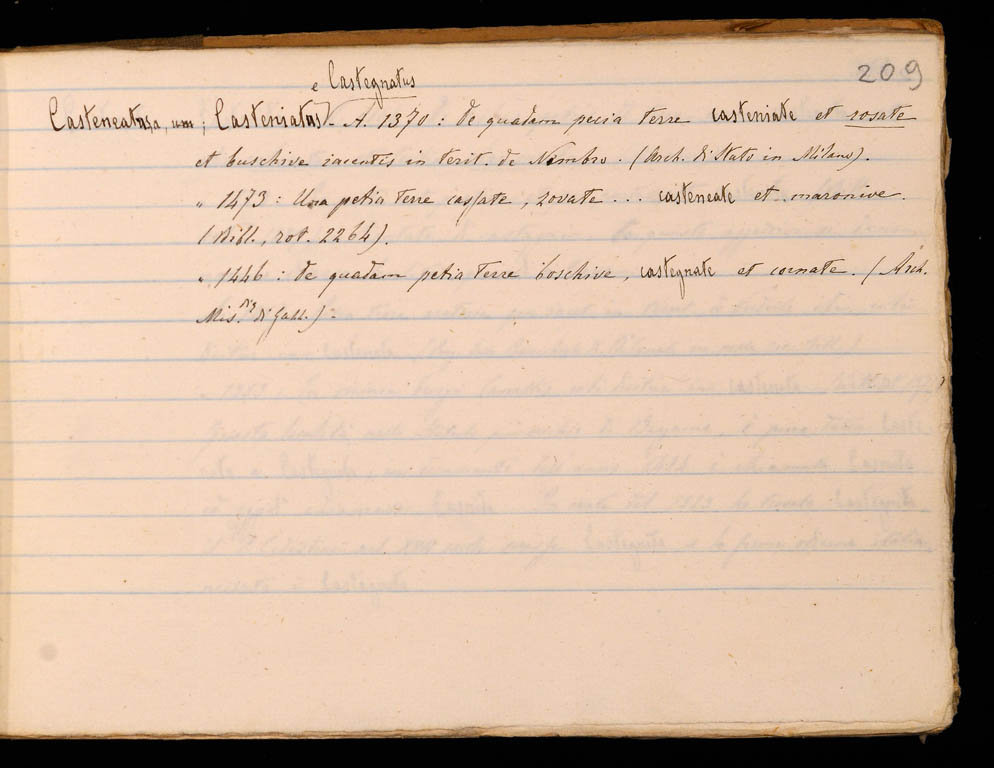 209
e Castegnatus
Casteneatus, a, um; Casteniatus). A. 1370: De quadam pecia terre casteniate et rosate
et buschive iacentis in terit. de Nimbro. (Arch. di Stato in Milano).
" 1473: Una petia terre cassate, zovate ... casteneate et maronive.
(Bibl., rot. 2264).
" 1446: De quadam petia terre boschive, castegnate et cornate. (Arch.
Mis.